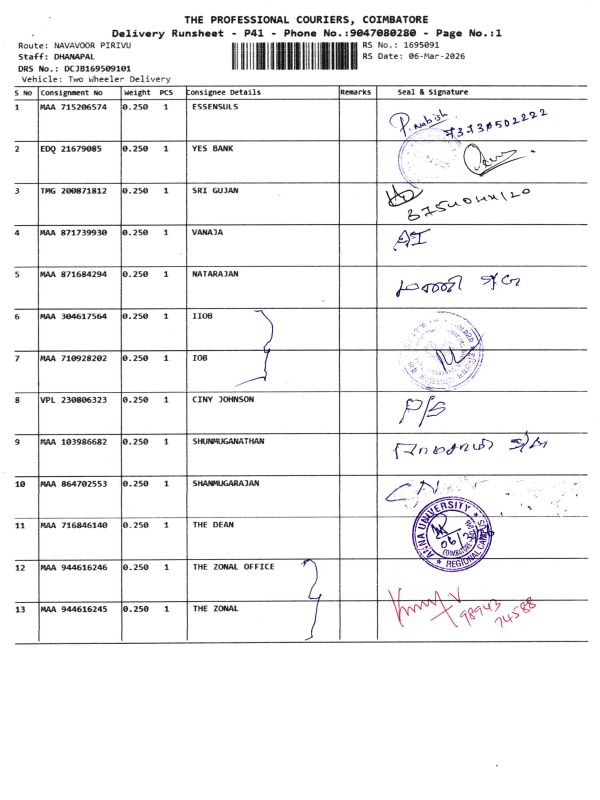 THE PROFESSIONAL COURIERS, COIMBATORE
Delivery Runsheet - P41 - Phone No.:9047080280 - Page No.:1
Route: NAVAVOOR PIRIVU RS No.: 1695091
Staff: DHANAPAL RS Date: 06-Mar-2026
DRS No.: DCJB169509101
Vehicle: Two Wheeler Delivery
S No Consignment No Weight PCS Consignee Details Remarks Seal & Signature
1 MAA 715206574 0.250 1 ESSENSULS
2 EDQ 21679085 0.250 1 YES BANK
3 TMG 200871812 0.250 1 SRI GUJAN
4 MAA 871739930 0.250 1 VANAJA
5 MAA 871684294 0.250 1 NATARAJAN
6 MAA 304617564 0.250 1 IIOB
7 MAA 710928202 0.250 1 IOB
8 VPL 230806323 0.250 1 CINY JOHNSON P/S
9 MAA 103986682 0.250 1 SHUNMUGANATHAN
10 MAA 864702553 0.250 1 SHANMUGARAJAN
11 MAA 716846140 0.250 1 THE DEAN ANNA UNIVERSITY REGIONAL CAMPUS
12 MAA 944616246 0.250 1 THE ZONAL OFFICE
13 MAA 944616245 0.250 1 THE ZONAL 98943
74588